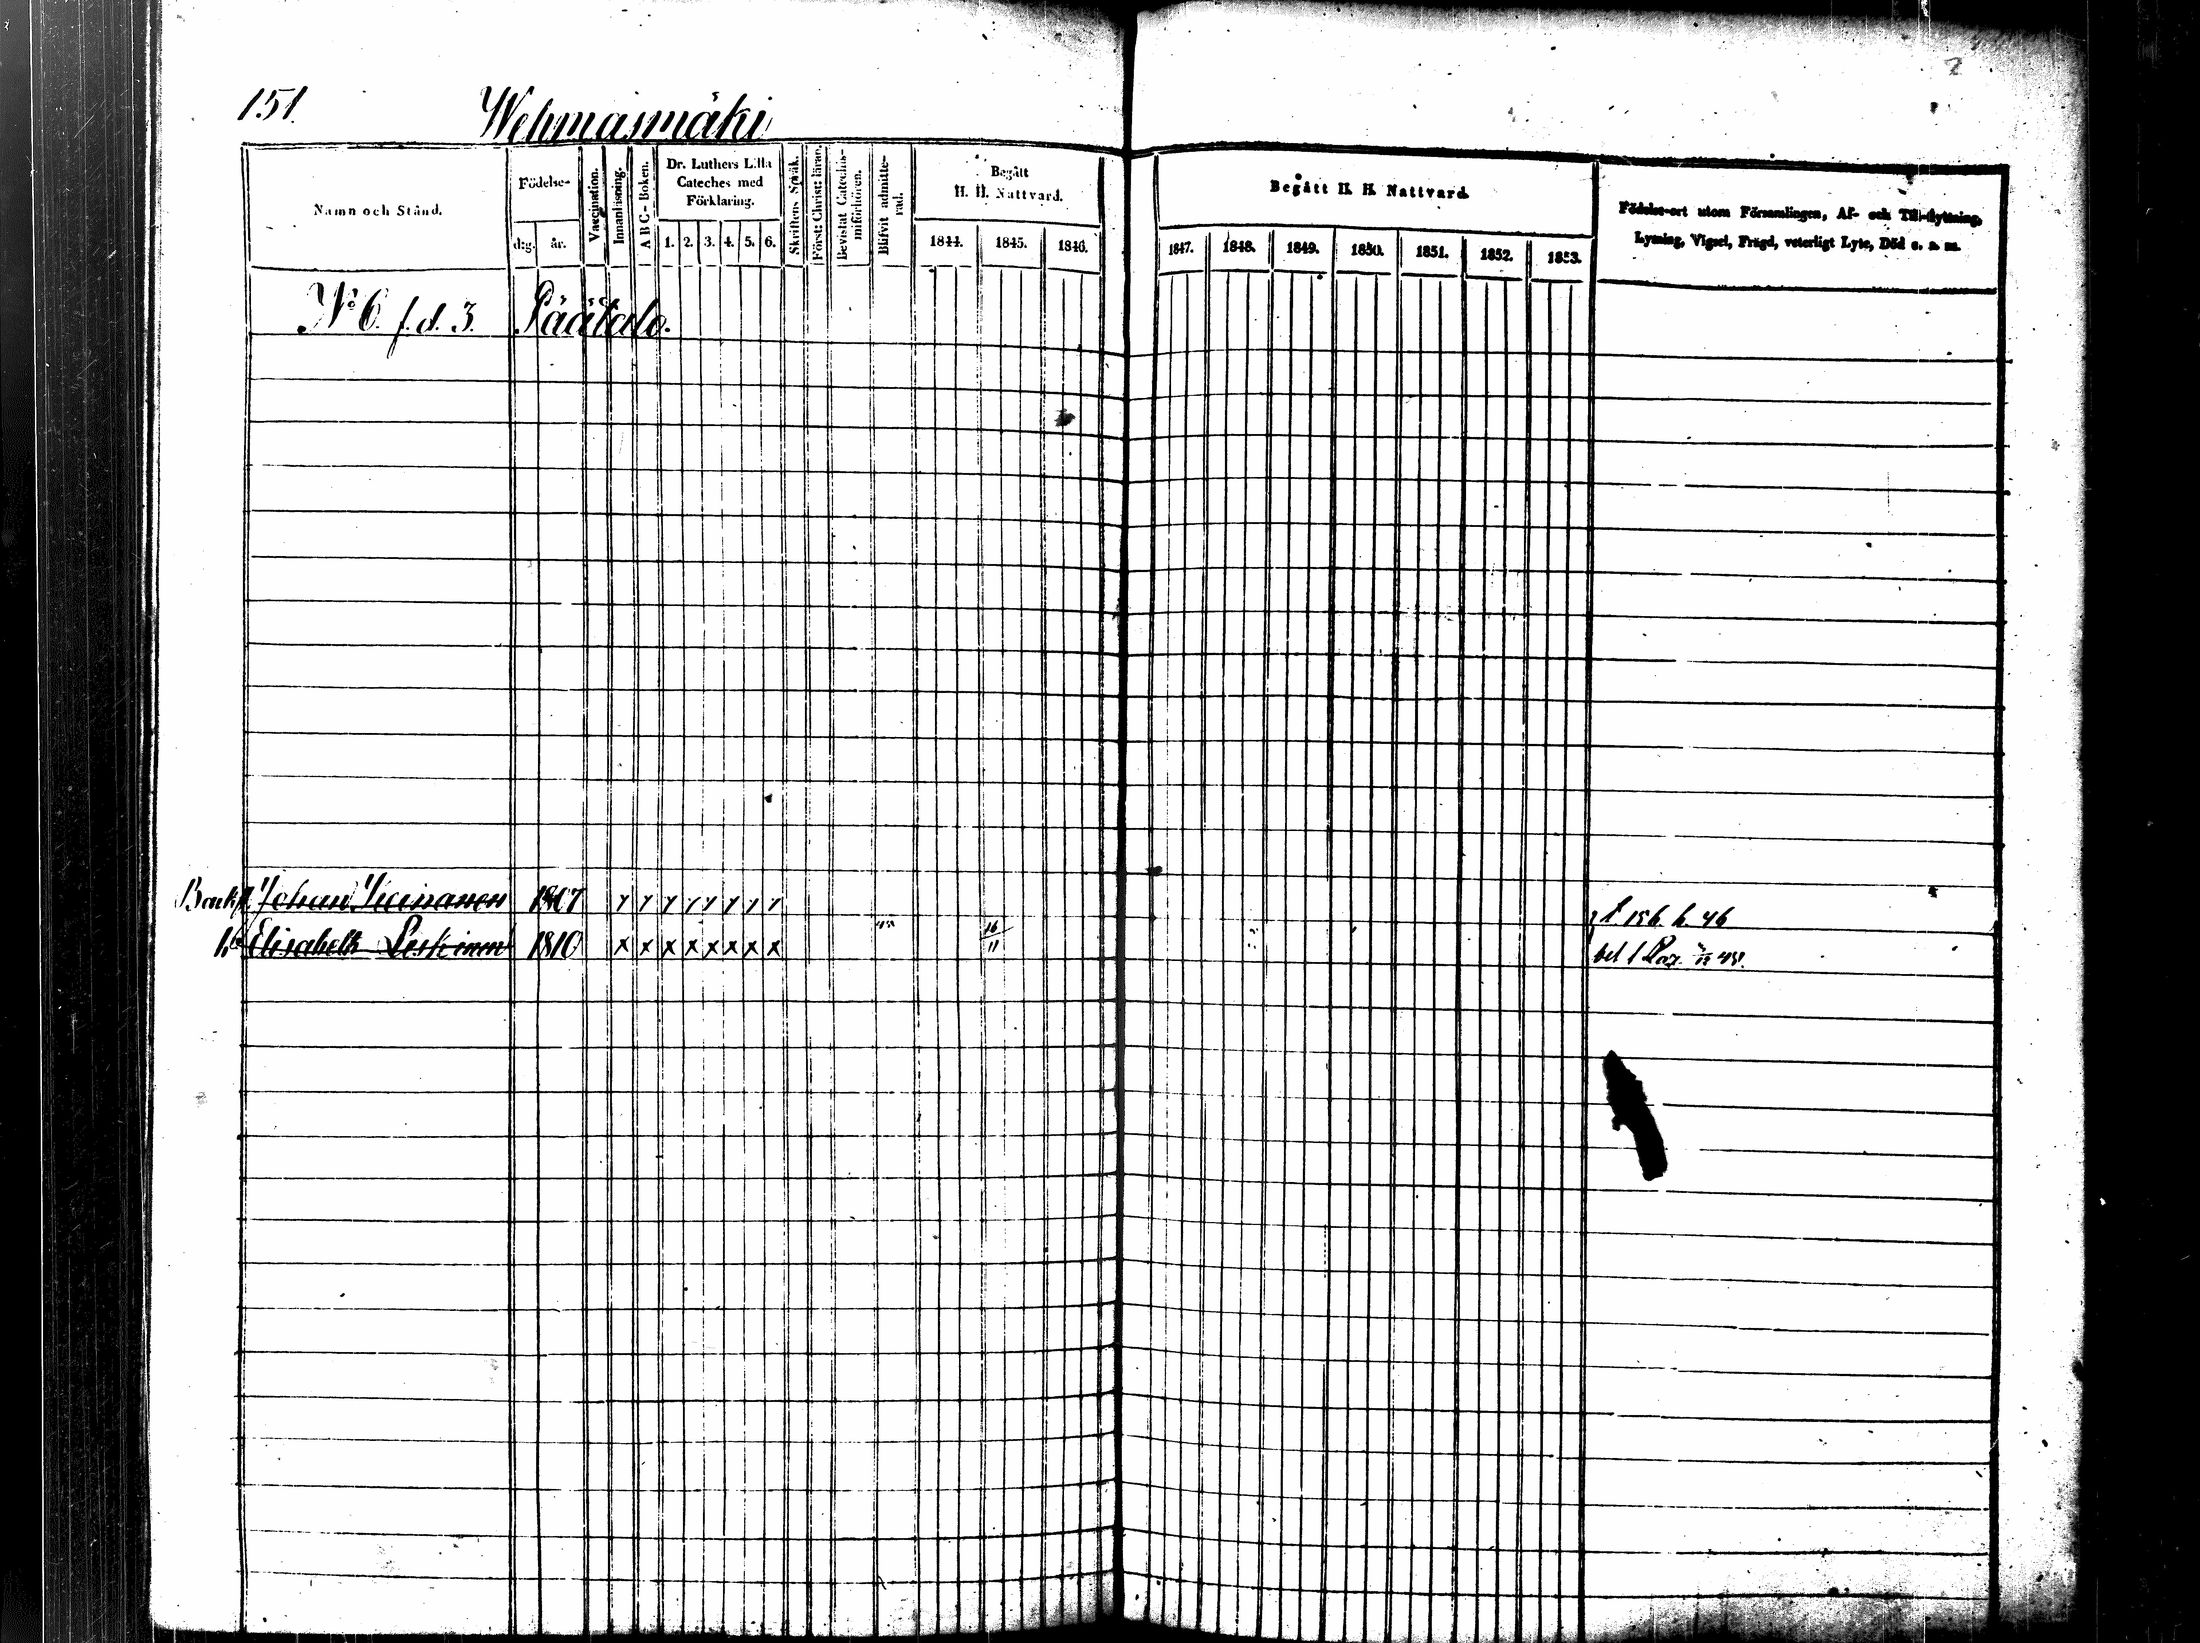 151.
Wehmasmäki
2
Namn och Stånd.
Födelse-
d:g. år.
Vaccination.
Innanläsning.
A B C - Boken.
Dr. Luthers Lilla
Cateches med
Förklaring.
1. 2. 3. 4. 5. 6.
Skriftens Språk.
Först: Christ: läran.
Bevistat Catechis-
miförhören.
Blifvit admitte-
rad.
Begått
H. H. Nattvard.
1844. 1845. 1846.
Begått H. H. Nattvard.
1847. 1848. 1849. 1850. 1851. 1852. 1853.
Födelse-ort utom Församlingen, Af- och Till-flyttning,
Lysning, Vigsel, Frägd, veterligt Lyte, Död o. s. m.
No 6. f. d. 3. Päätalo.
Johan 1807 f. 156. b. 46
Elisabeth Leskinen 1810 x x x x x x x x 45 16/11